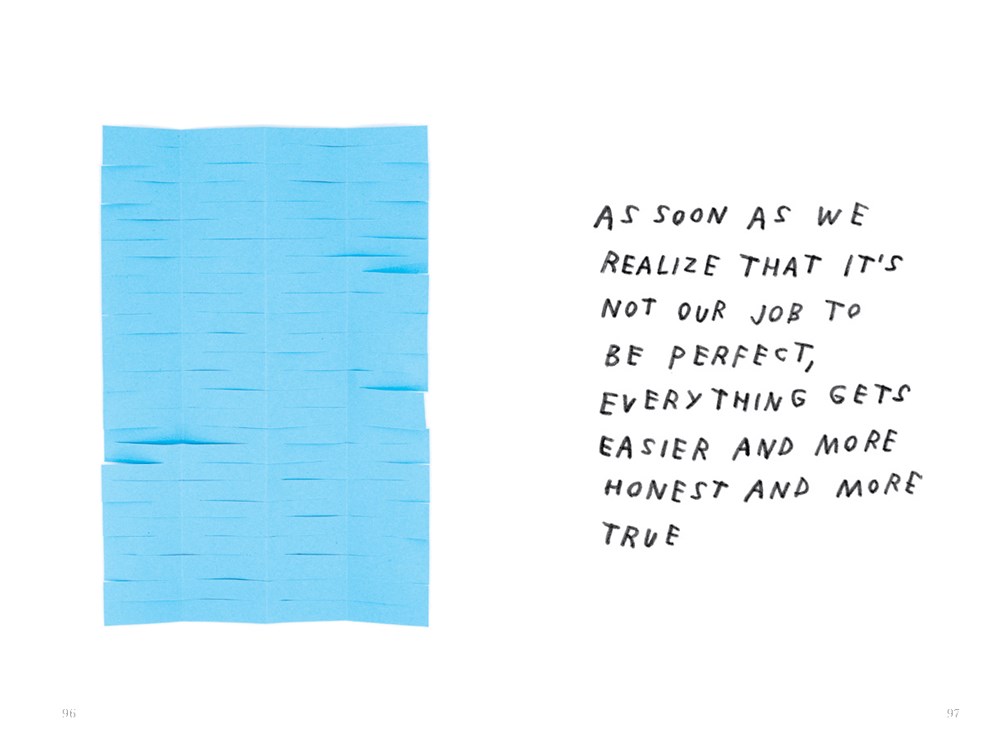 AS SOON AS WE
REALIZE THAT IT'S
NOT OUR JOB TO
BE PERFECT,
EVERYTHING GETS
EASIER AND MORE
HONEST AND MORE
TRUE
96
97